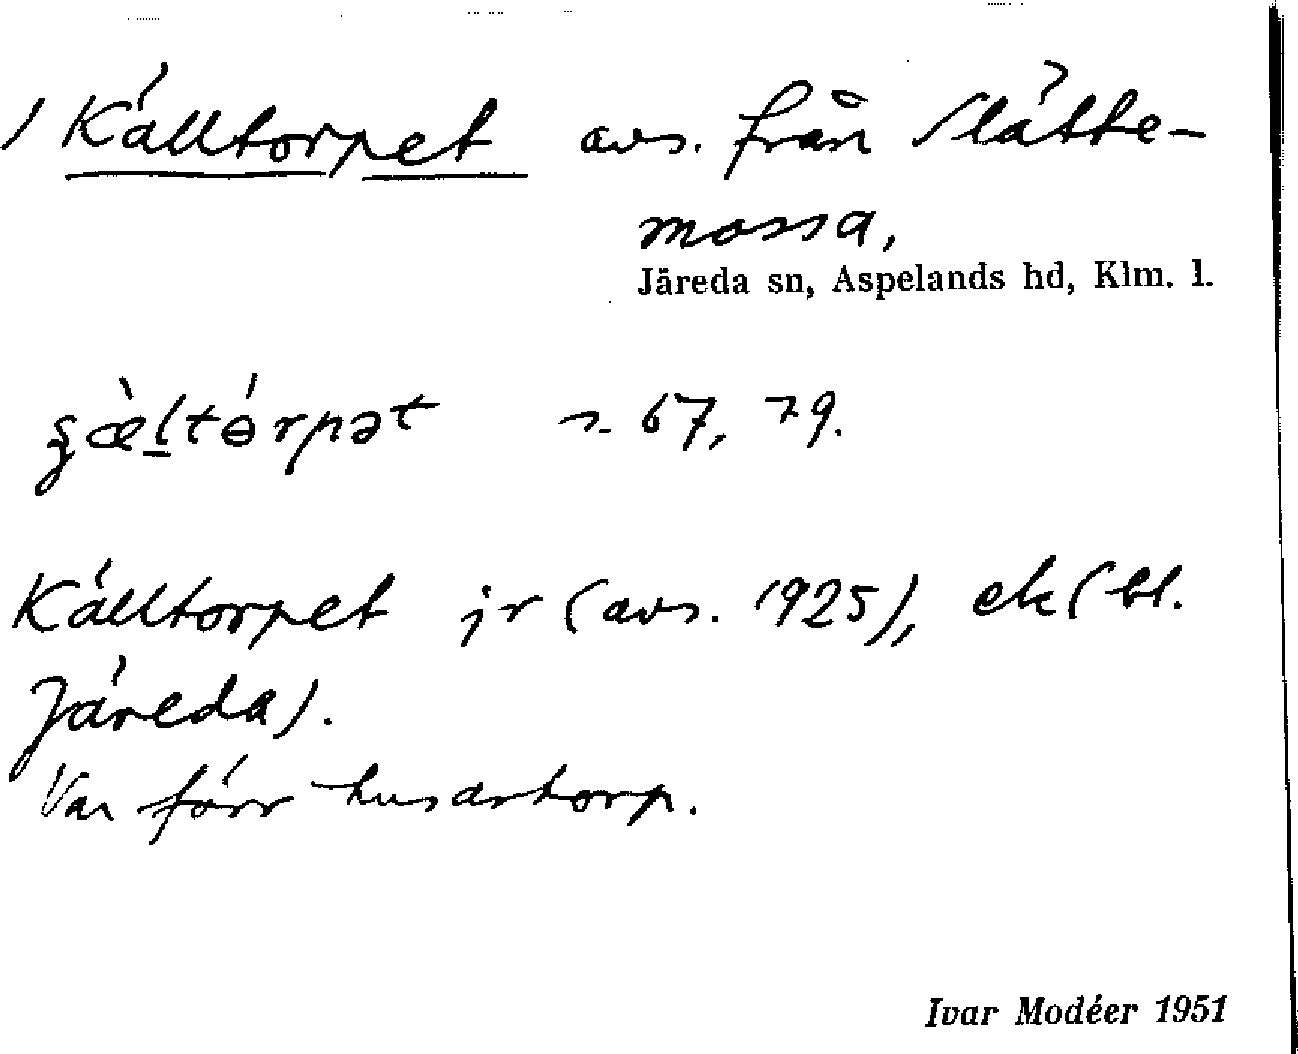 / Källtorpet avs. från Slätte-
mossa,
Järeda sn, Aspelands hd, Klm. l.
s. 67, 79.
Källtorpet jr (avs. 1925), ek (bl.
Järeda).
Var förr husartorp.
Ivar Modéer 1951